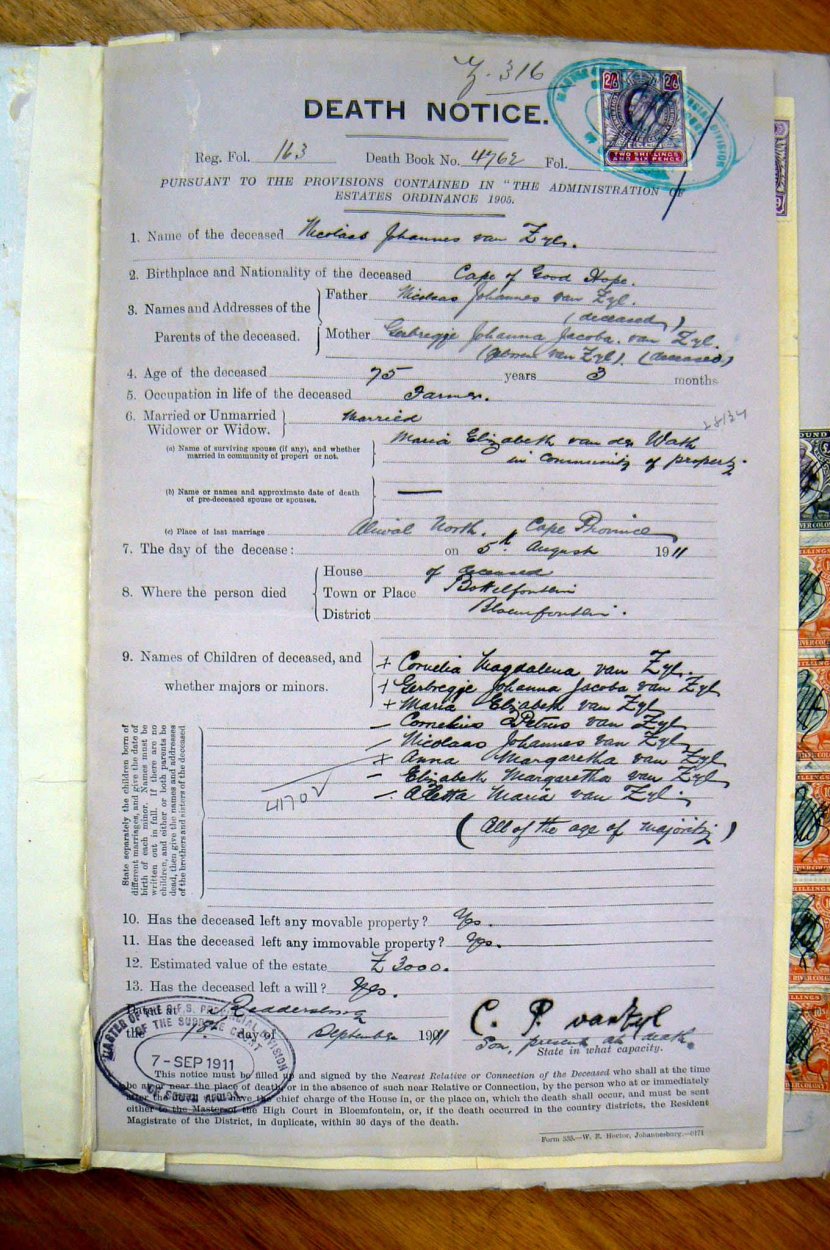 Z. 316
DEATH NOTICE.
Reg. Fol. 163 Death Book No. 4762 Fol.
PURSUANT TO THE PROVISIONS CONTAINED IN "THE ADMINISTRATION OF
ESTATES ORDINANCE 1905.
2/6 2/6
TWO SHILLINGS
AND SIX PENCE
1. Name of the deceased Nicolaas Johannes van Zyl.
2. Birthplace and Nationality of the deceased Cape of Good Hope.
3. Names and Addresses of the Parents of the deceased. Father Nicolaas Johannes van Zyl.
(deceased)
Mother Gerbregge Johanna Jacoba van Zyl.
(geboren van Zyl). (deceased)
4. Age of the deceased 75 years 3 months
5. Occupation in life of the deceased Farmer.
6. Married or Unmarried
Widower or Widow. Married
(a) Name of surviving spouse (if any), and whether
married in community of propert or not.
Maria Elizabeth van der Wath
in community of property.
(b) Name or names and approximate date of death
of pre-deceased spouse or spouses. —
(c) Place of last marriage Aliwal North. Cape Province
7. The day of the decease: on 5th August 1911
8. Where the person died
House of deceased
Town or Place Bottelfontein
District Bloemfontein.
9. Names of Children of deceased, and
whether majors or minors.
+ Cornelia Magdalena van Zyl.
+ Gerbregge Johanna Jacoba van Zyl
+ Maria Elizabeth van Zyl
— Cornelius Petrus van Zyl
— Nicolaas Johannes van Zyl
+ Anna Margaretha van Zyl
— Elizabeth Margaretha van Zyl
— Aletta Maria van Zyl.
(All of the age of majority)
State separately the children born of
different marriages, and give the date of
birth of each minor. Names must be
written out in full. If there are no
children, and either or both parents be
dead, then give the names and addresses
of the brothers and sisters of the deceased
41702
10. Has the deceased left any movable property? Yes.
11. Has the deceased left any immovable property? Yes.
12. Estimated value of the estate £3000.
13. Has the deceased left a will? Yes.
Reddersburg
the day of September 1911
C. P. van Zyl
Son, present at death.
State in what capacity.
7-SEP 1911
This notice must be filled up and signed by the Nearest Relative or Connection of the Deceased who shall at the time
be at or near the place of death, or in the absence of such near Relative or Connection, by the person who at or immediately
after the death have the chief charge of the House in, or the place on, which the death shall occur, and must be sent
either to the Master of the High Court in Bloemfontein, or, if the death occurred in the country districts, the Resident
Magistrate of the District, in duplicate, within 30 days of the death.
Form 535.—W. E. Hortor, Johannesburg.—6171